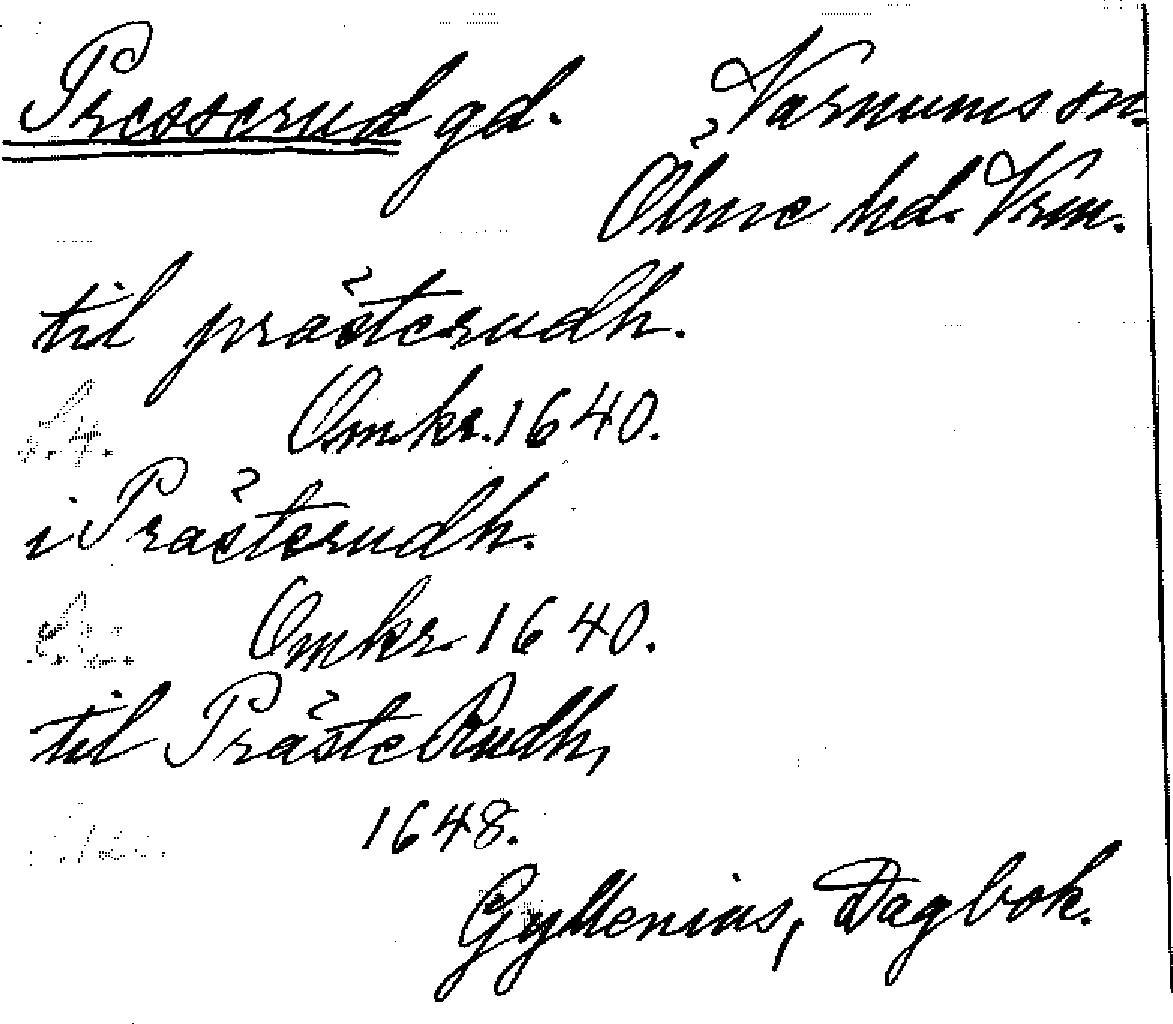 Presserud gd. Varnums sn.
Ölme hd. Vrm.
til prästerudh.
Omkr. 1640.
i Prästerudh.
Omkr. 1640.
til PrästeRudh,
1648.
Gyllenius, Dagbok.